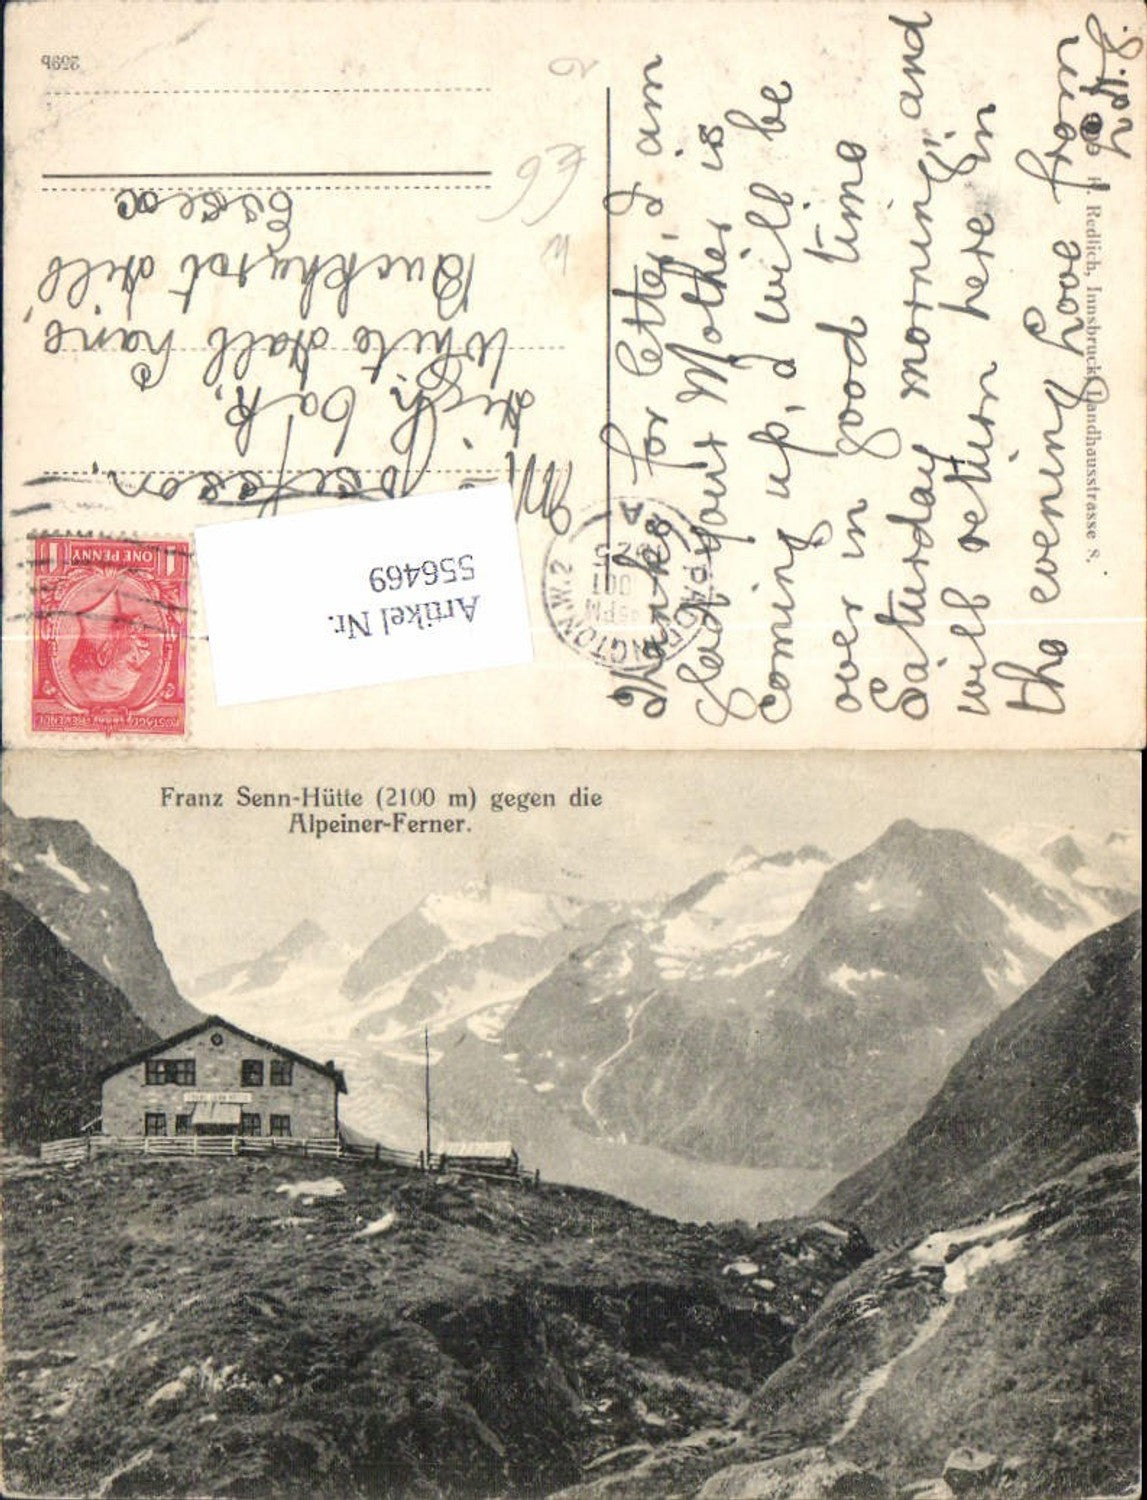 Thanks for letter, I am
glad your Mother is
coming up, I will be
over in good time
Saturday morning, and
will return here in
the evening, love from
H. Redlich, Innsbruck, Landhausstrasse 8.
White Hall Lane,
Buckhurst Hill
Essex
2599b
POSTAGE REVENUE
ONE PENNY
Artikel Nr.
556469
PADDINGTON.W.2
PM
OCT
25
A
Franz Senn-Hütte (2100 m) gegen die
Alpeiner-Ferner.